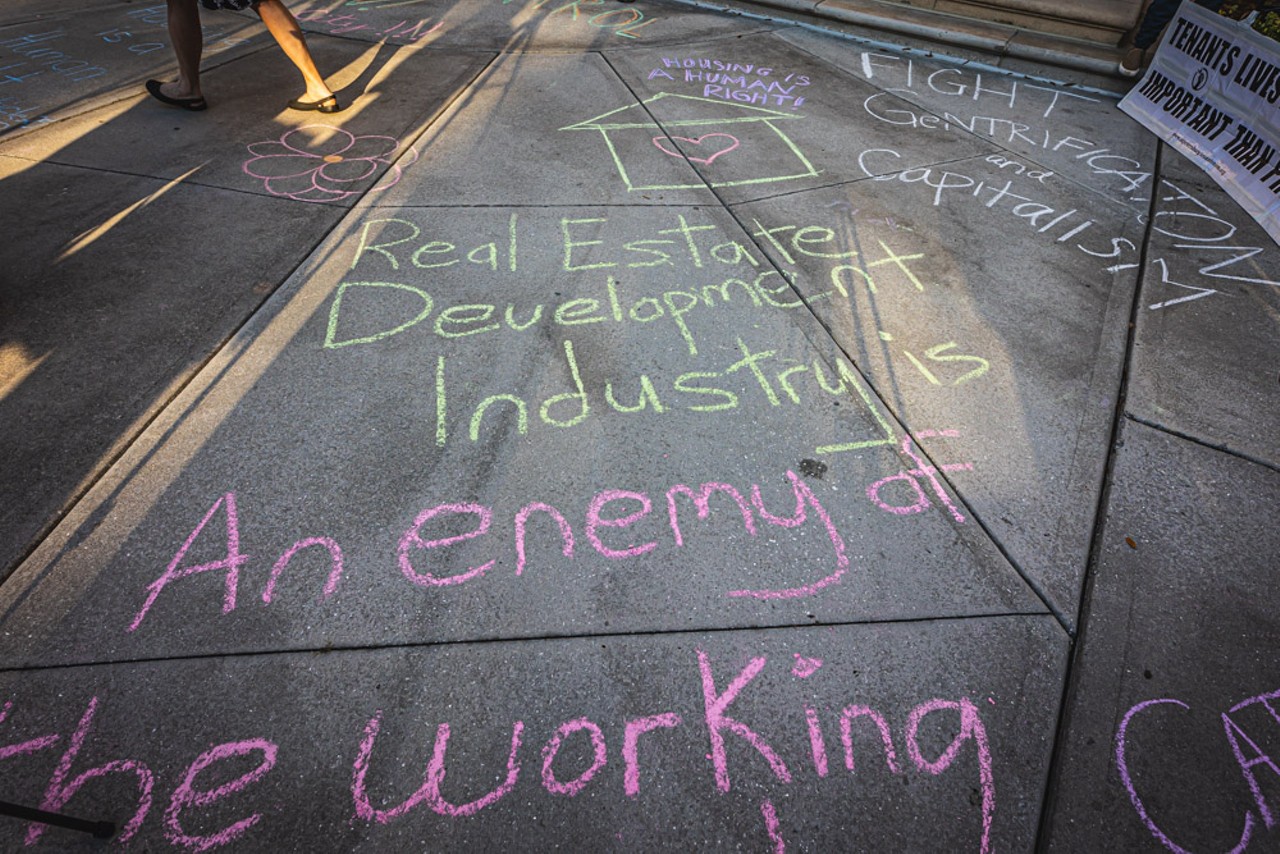 HOUSING IS
A HUMAN
RIGHT!
FIGHT
GENTRIFICATION
and
CapitalisM
TENANTS LIVES
IMPORTANT THAN
Real Estate
Development
Industry is
An enemy of
the working
CA